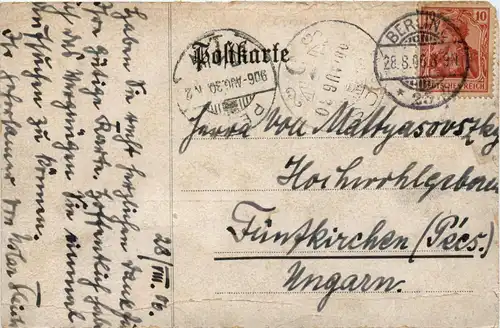 Postkarte
BERLIN
28.8.06. 8-9N.
* 25
10
DEUTSCHES REICH
906 AUG. 30
PÉCS
Herrn von Mattyasovszky
Hochwohlgeboren
Fünfkirchen (Pécs.)
Ungarn.
28/VIII. 06.
Haben Sie recht herzlichen Dank für
Ihre gütige Karte. Hoffentlich habe
ich das Vergnügen Sie einmal
aufsuchen zu können.
Ihr ergebener von